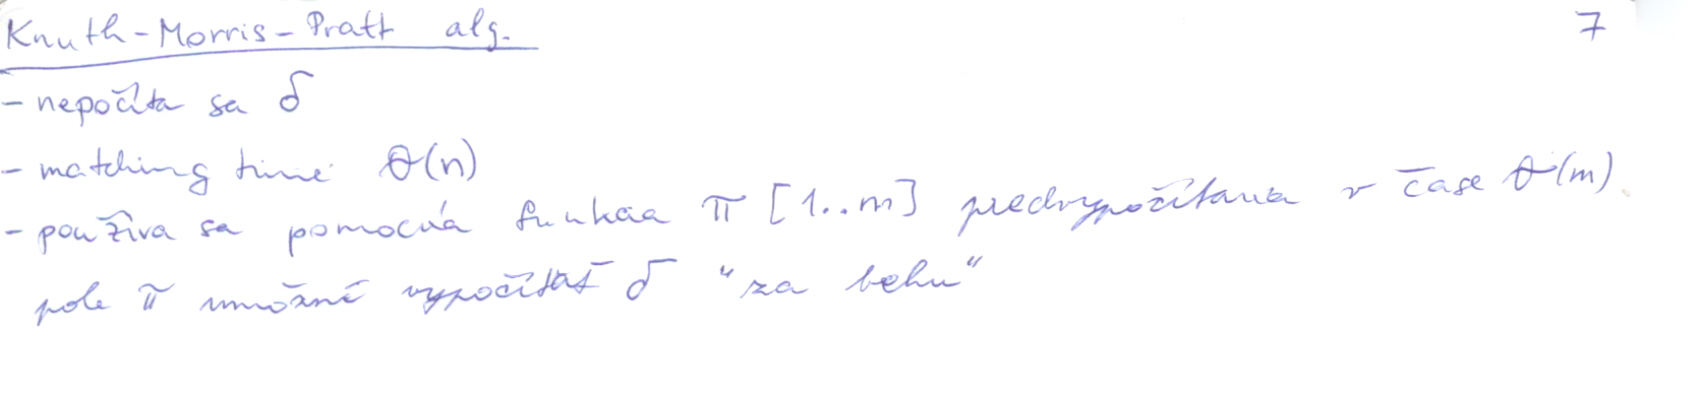 Knuth-Morris-Pratt alg. 7
- nepočíta sa δ
- matching time Θ(n)
- používa sa pomocná funkcia π [1..m] predvypočítana v čase Θ(m).
pole π umožní vypočítať δ "za behu"